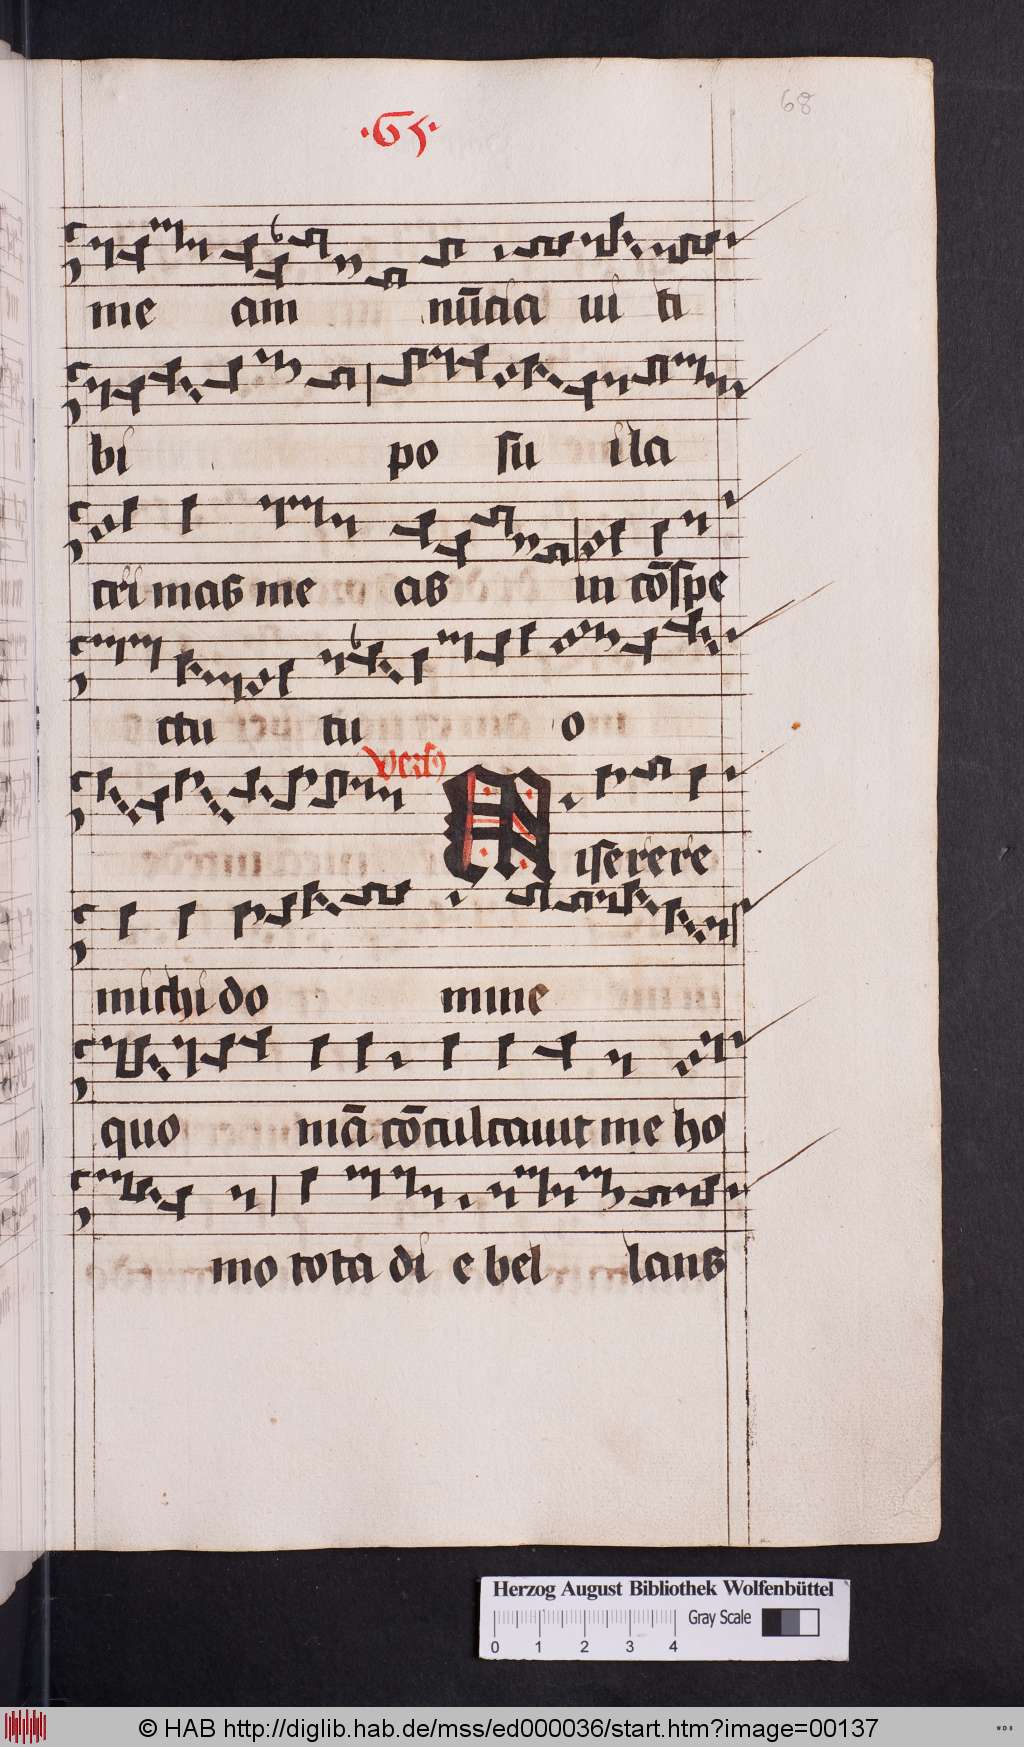 68
·65·
me am nūcia ui ti
bi po ſu i la
cri mas me as in cōſpe
ctu tu o
Verſ9
Miserere
michi do mine
quo niā cōculcauit me ho
mo tota di e bel lans
Herzog August Bibliothek Wolfenbüttel
Gray Scale
0 1 2 3 4
© HAB http://diglib.hab.de/mss/ed000036/start.htm?image=00137